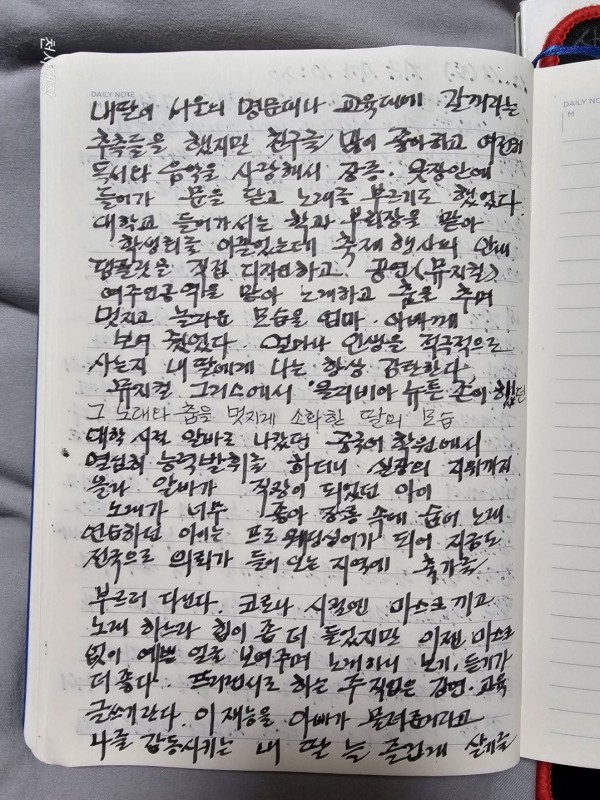 DAILY NOTE
내딸이 서울의 명문대나 교육대에 갈꺼라는
추측들을 했지만 친구를 많이 좋아하고 여전히
독서와 음악을 사랑해서 장롱. 옷장안에
들어가 문을 닫고 노래를 부르기도 했었다.
대학교 들어가서는 학과 부회장을 맡아
학생회를 이끌었는데 축제 행사의 안내
팜플릿을 직접 디자인하고. 공연(뮤지컬)
여주인공역을 맡아 노래하고 춤을 추며
멋지고 놀라운 모습을 엄마. 아빠께
보여 줬었다. 얼마나 인생을 적극적으로
사는지 내 딸에게 나는 항상 감탄한다
뮤지컬 그리스에서 올리비아 뉴튼 존이 했던
그 노래와 춤을 멋지게 소화한 딸의 모습
대학시절 알바로 나갔던 중국어 학원에서
열심히 능력발휘를 하더니 실장의 지위까지
올라 알바가 직장이 되었던 아이
노래가 너무 좋아 장롱 속에 숨어 노래
연습하던 아이는 프로 웨딩싱어가 되어 지금도
전국으로 의뢰가 들어 오는 지역에 축가를
부르러 다닌다. 코로나 시절엔 마스크 끼고
노래 하느라 힘이 좀 더 들었지만 이젠 마스크
없이 예쁜 얼굴 보여주며 노래하니 보기, 듣기가
더 좋다. 프리랜서로 하는 주 직업은 강연. 교육
글쓰기란다. 이 재능을 아빠가 물려준거라고
나를 감동시키는 내 딸 늘 즐겁게 살기를
DAILY NO
M